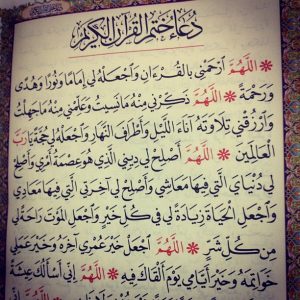 دُعَاءُ خَتْمِ القُرْآنِ الكَرِيمِ
* اللَّهُمَّ ارْحَمْنِي بِالقُرْءَانِ وَاجْعَلْهُ لِي إِمَامًا وَنُورًا وَهُدًى
وَرَحْمَةً * اللَّهُمَّ ذَكِّرْنِي مِنْهُ مَانَسِيتُ وَعَلِّمْنِي مِنْهُ مَاجَهِلْتُ
وَارْزُقْنِي تِلَاوَتَهُ آنَاءَ اللَّيْلِ وَأَطْرَافَ النَّهَارِ وَاجْعَلْهُ لِي حُجَّةً يَارَبَّ
العَالَمِينَ * اللَّهُمَّ أَصْلِحْ لِي دِينِي الَّذِي هُوَ عِصْمَةُ أَمْرِي وَأَصْلِحْ
لِي دُنْيَايَ الَّتِي فِيهَا مَعَاشِي وَأَصْلِحْ لِي آخِرَتِي الَّتِي فِيهَا مَعَادِي
وَاجْعَلِ الحَيَاةَ زِيَادَةً لِي فِي كُلِّ خَيْرٍ وَاجْعَلِ المَوْتَ رَاحَةً لِي
مِنْ كُلِّ شَرٍّ * اللَّهُمَّ اجْعَلْ خَيْرَ عُمْرِي آخِرَهُ وَخَيْرَ عَمَلِي
خَوَاتِمَهُ وَخَيْرَ أَيَّامِي يَوْمَ أَلْقَاكَ فِيهِ * اللَّهُمَّ إِنِّي أَسْأَلُكَ عِيشَةً